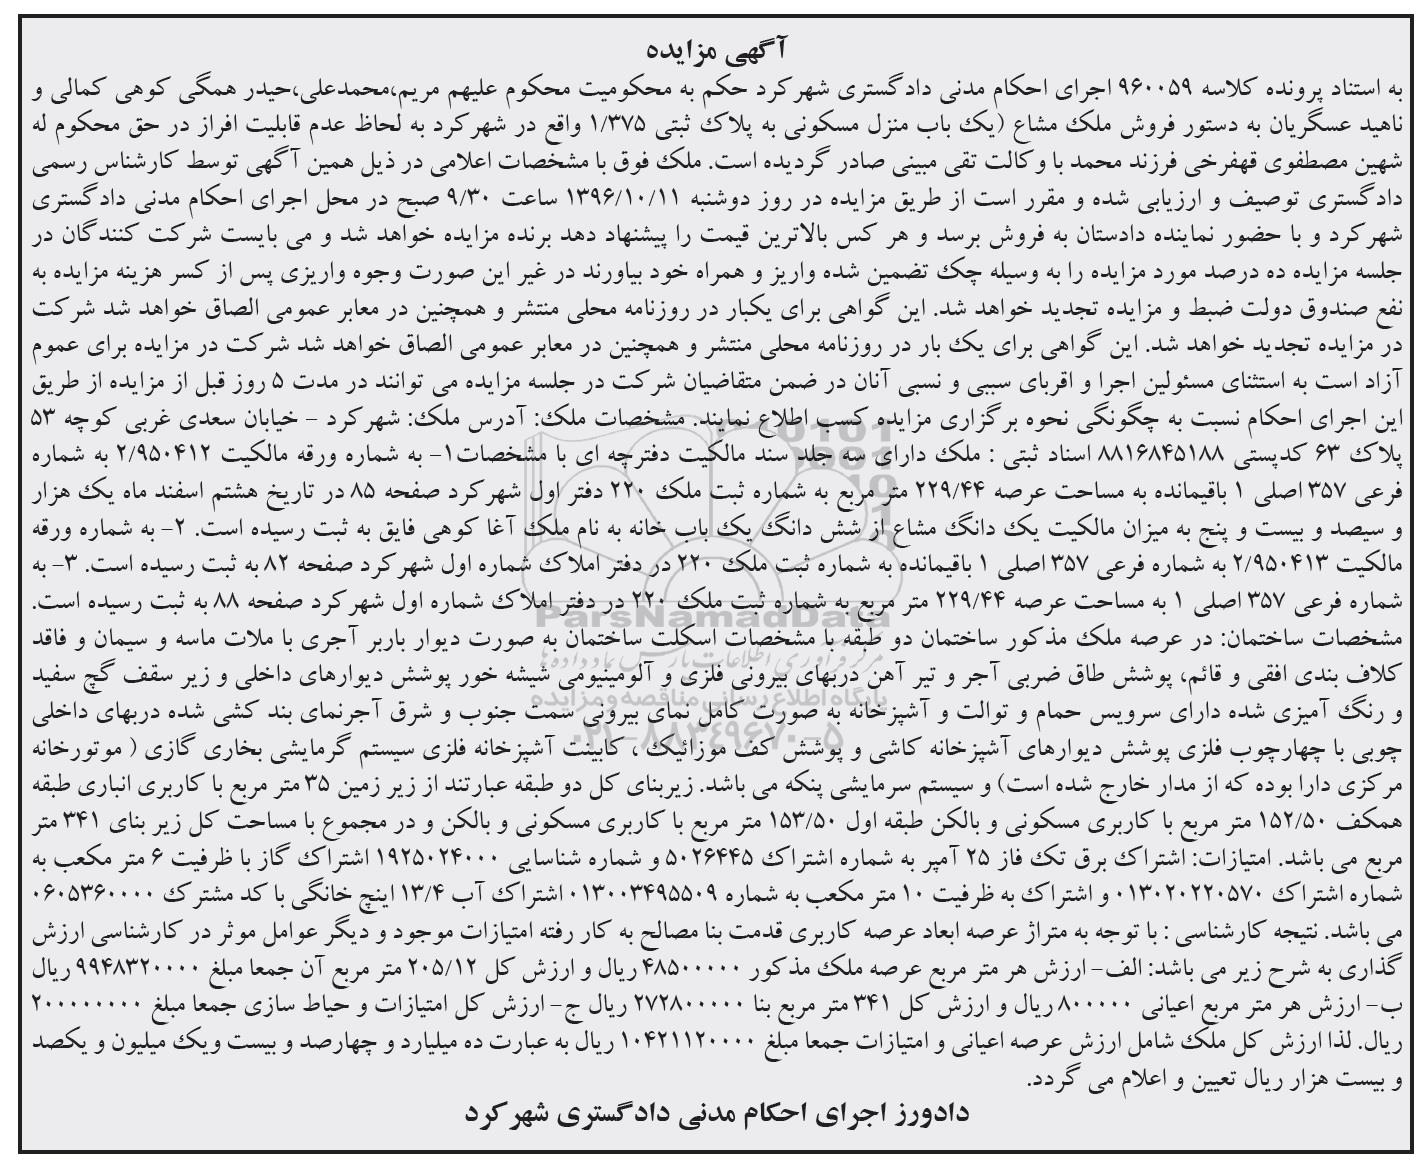 آگهی مزایده
به استناد پرونده کلاسه ۹۶۰۰۵۹ اجرای احکام مدنی دادگستری شهرکرد حکم به محکومیت محکوم علیهم مریم،محمدعلی،حیدر همگی کوهی کمالی و
ناهید عسگریان به دستور فروش ملک مشاع (یک باب منزل مسکونی به پلاک ثبتی ۱/۳۷۵ واقع در شهرکرد به لحاظ عدم قابلیت افراز در حق محکوم له
شهین مصطفوی قهفرخی فرزند محمد با وکالت تقی مبینی صادر گردیده است. ملک فوق با مشخصات اعلامی در ذیل همین آگهی توسط کارشناس رسمی
دادگستری توصیف و ارزیابی شده و مقرر است از طریق مزایده در روز دوشنبه ۱۳۹۶/۱۰/۱۱ ساعت ۹/۳۰ صبح در محل اجرای احکام مدنی دادگستری
شهرکرد و با حضور نماینده دادستان به فروش برسد و هر کس بالاترین قیمت را پیشنهاد دهد برنده مزایده خواهد شد و می بایست شرکت کنندگان در
جلسه مزایده ده درصد مورد مزایده را به وسیله چک تضمین شده واریز و همراه خود بیاورند در غیر این صورت وجوه واریزی پس از کسر هزینه مزایده به
نفع صندوق دولت ضبط و مزایده تجدید خواهد شد. این گواهی برای یکبار در روزنامه محلی منتشر و همچنین در معابر عمومی الصاق خواهد شد شرکت
در مزایده تجدید خواهد شد. این گواهی برای یک بار در روزنامه محلی منتشر و همچنین در معابر عمومی الصاق خواهد شد شرکت در مزایده برای عموم
آزاد است به استثنای مسئولین اجرا و اقربای سببی و نسبی آنان در ضمن متقاضیان شرکت در جلسه مزایده می توانند در مدت ۵ روز قبل از مزایده از طریق
این اجرای احکام نسبت به چگونگی نحوه برگزاری مزایده کسب اطلاع نمایند. مشخصات ملک: آدرس ملک: شهرکرد – خیابان سعدی غربی کوچه ۵۳
پلاک ۶۳ کدپستی ۸۸۱۶۸۴۵۱۸۸ اسناد ثبتی : ملک دارای سه جلد سند مالکیت دفترچه ای با مشخصات۱- به شماره ورقه مالکیت ۲/۹۵۰۴۱۲ به شماره
فرعی ۳۵۷ اصلی ۱ باقیمانده به مساحت عرصه ۲۲۹/۴۴ متر مربع به شماره ثبت ملک ۲۲۰ دفتر اول شهرکرد صفحه ۸۵ در تاریخ هشتم اسفند ماه یک هزار
و سیصد و بیست و پنج به میزان مالکیت یک دانگ مشاع از شش دانگ یک باب خانه به نام ملک آغا کوهی فایق به ثبت رسیده است. ۲- به شماره ورقه
مالکیت ۲/۹۵۰۴۱۳ به شماره فرعی ۳۵۷ اصلی ۱ باقیمانده به شماره ثبت ملک ۲۲۰ در دفتر املاک شماره اول شهرکرد صفحه ۸۲ به ثبت رسیده است. ۳- به
شماره فرعی ۳۵۷ اصلی ۱ به مساحت عرصه ۲۲۹/۴۴ متر مربع به شماره ثبت ملک ۲۲۰ در دفتر املاک شماره اول شهرکرد صفحه ۸۸ به ثبت رسیده است.
مشخصات ساختمان: در عرصه ملک مذکور ساختمان دو طبقه با مشخصات اسکلت ساختمان به صورت دیوار باربر آجری با ملات ماسه و سیمان و فاقد
کلاف بندی افقی و قائم، پوشش طاق ضربی آجر و تیر آهن دربهای بیرونی فلزی و آلومینیومی شیشه خور پوشش دیوارهای داخلی و زیر سقف گچ سفید
و رنگ آمیزی شده دارای سرویس حمام و توالت و آشپزخانه به صورت کامل نمای بیرونی سمت جنوب و شرق آجرنمای بند کشی شده دربهای داخلی
چوبی با چهارچوب فلزی پوشش دیوارهای آشپزخانه کاشی و پوشش کف موزائیک ، کابینت آشپزخانه فلزی سیستم گرمایشی بخاری گازی ( موتورخانه
مرکزی دارا بوده که از مدار خارج شده است) و سیستم سرمایشی پنکه می باشد. زیربنای کل دو طبقه عبارتند از زیر زمین ۳۵ متر مربع با کاربری انباری طبقه
همکف ۱۵۲/۵۰ متر مربع با کاربری مسکونی و بالکن طبقه اول ۱۵۳/۵۰ متر مربع با کاربری مسکونی و بالکن و در مجموع با مساحت کل زیر بنای ۳۴۱ متر
مربع می باشد. امتیازات: اشتراک برق تک فاز ۲۵ آمپر به شماره اشتراک ۵۰۲۶۴۴۵ و شماره شناسایی ۱۹۲۵۰۲۴۰۰۰ اشتراک گاز با ظرفیت ۶ متر مکعب به
شماره اشتراک ۰۱۳۰۲۰۲۲۰۵۷۰ و اشتراک به ظرفیت ۱۰ متر مکعب به شماره ۰۱۳۰۰۳۴۹۵۵۰۹ اشتراک آب ۱۳/۴ اینچ خانگی با کد مشترک ۰۶۰۵۳۶۰۰۰۰
می باشد. نتیجه کارشناسی : با توجه به متراژ عرصه ابعاد عرصه کاربری قدمت بنا مصالح به کار رفته امتیازات موجود و دیگر عوامل موثر در کارشناسی ارزش
گذاری به شرح زیر می باشد: الف- ارزش هر متر مربع عرصه ملک مذکور ۴۸۵۰۰۰۰۰ ریال و ارزش کل ۲۰۵/۱۲ متر مربع آن جمعا مبلغ ۹۹۴۸۳۲۰۰۰۰ ریال
ب- ارزش هر متر مربع اعیانی ۸۰۰۰۰۰ ریال و ارزش کل ۳۴۱ متر مربع بنا ۲۷۲۸۰۰۰۰۰ ریال ج- ارزش کل امتیازات و حیاط سازی جمعا مبلغ ۲۰۰۰۰۰۰۰۰
ریال. لذا ارزش کل ملک شامل ارزش عرصه اعیانی و امتیازات جمعا مبلغ ۱۰۴۲۱۱۲۰۰۰۰ ریال به عبارت ده میلیارد و چهارصد و بیست ویک میلیون و یکصد
و بیست هزار ریال تعیین و اعلام می گردد.
دادورز اجرای احکام مدنی دادگستری شهرکرد
ParsNamadData
مرکز فرآوری اطلاعات پارس نماد داده ها
پایگاه اطلاع رسانی مناقصه و مزایده
۰۲۱-۸۸۳۴۹۶۷۰-۵